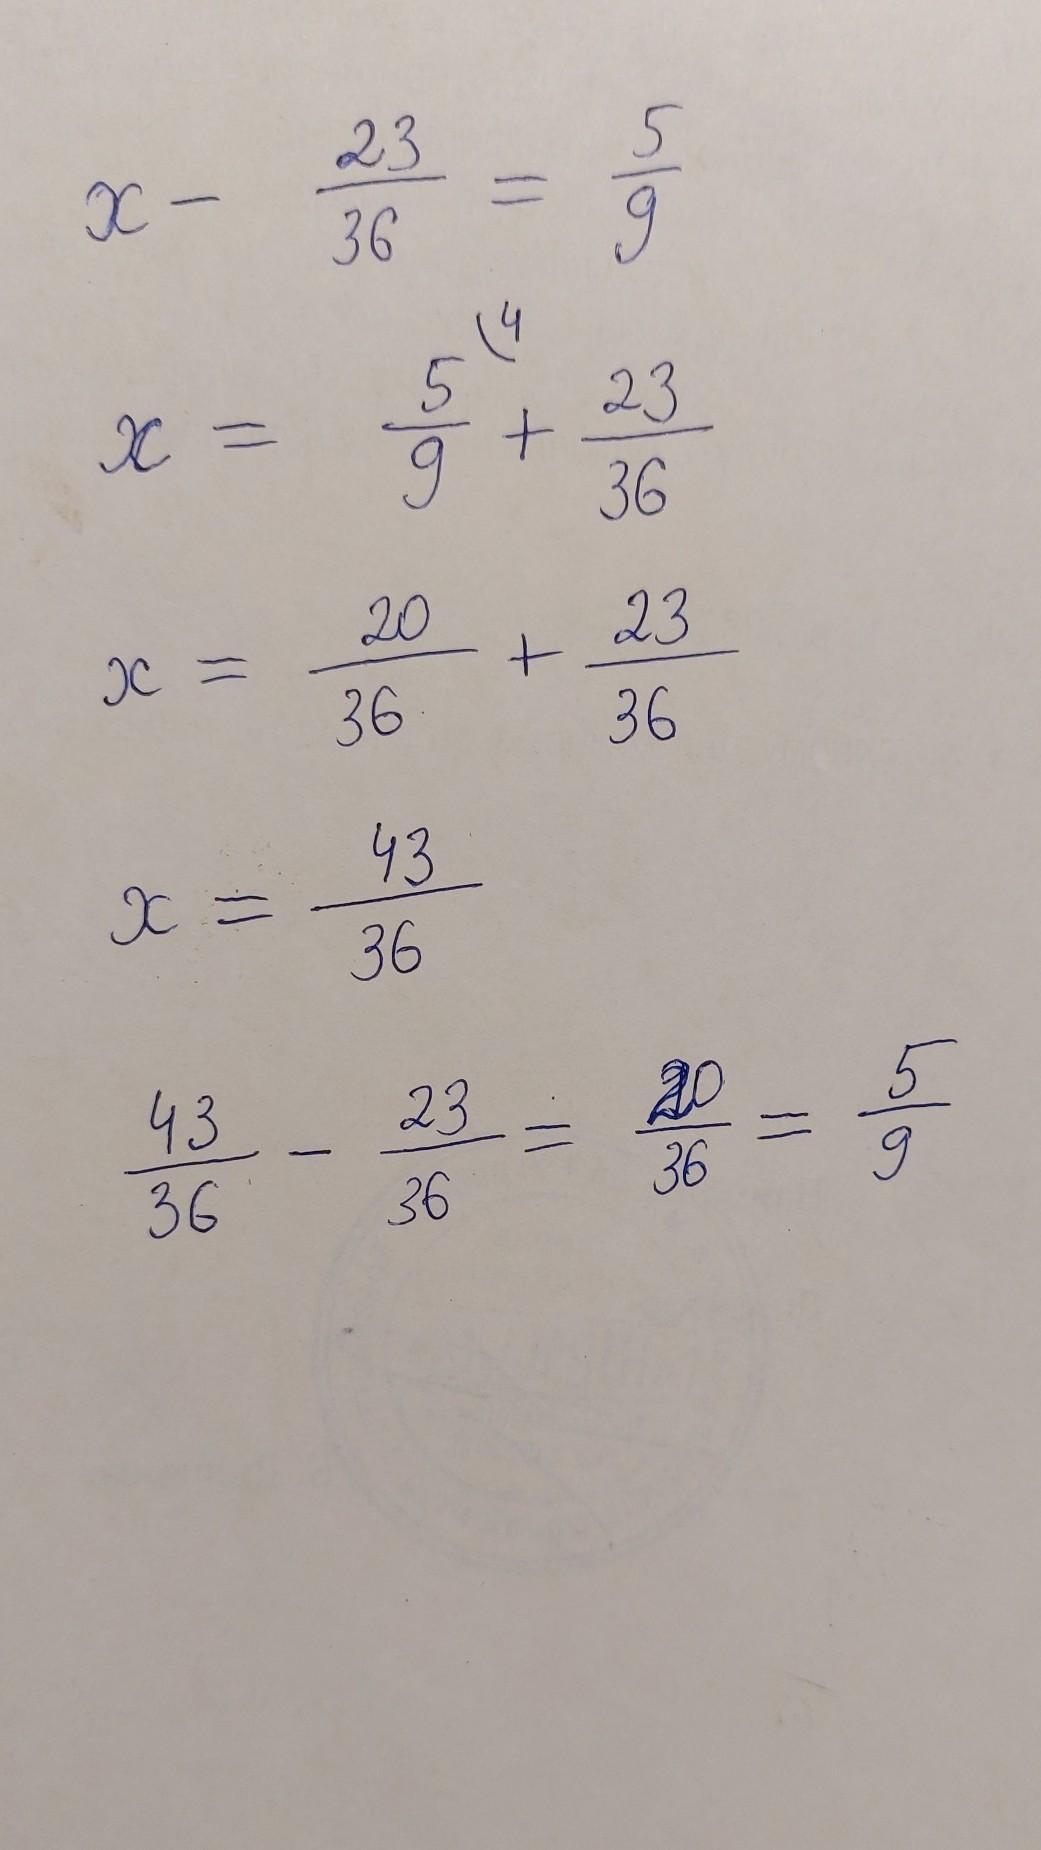 x - 23/36 = 5/9
x = 5/9 (4 + 23/36
x = 20/36 + 23/36
x = 43/36
43/36 - 23/36 = 20/36 = 5/9